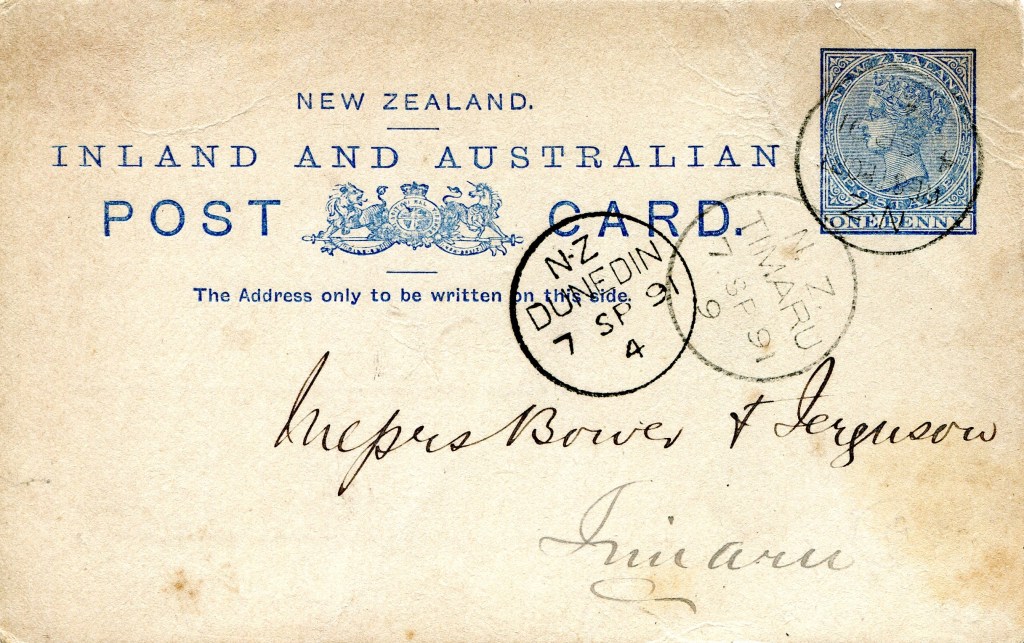 NEW ZEALAND.
INLAND AND AUSTRALIAN
POST CARD.
The Address only to be written on this side.
NEW ZEALAND
ONE PENNY
N.Z
DUNEDIN
7 SP 91
4
N.Z
TIMARU
7 SP 91
9
Messrs Bower & Ferguson
Timaru